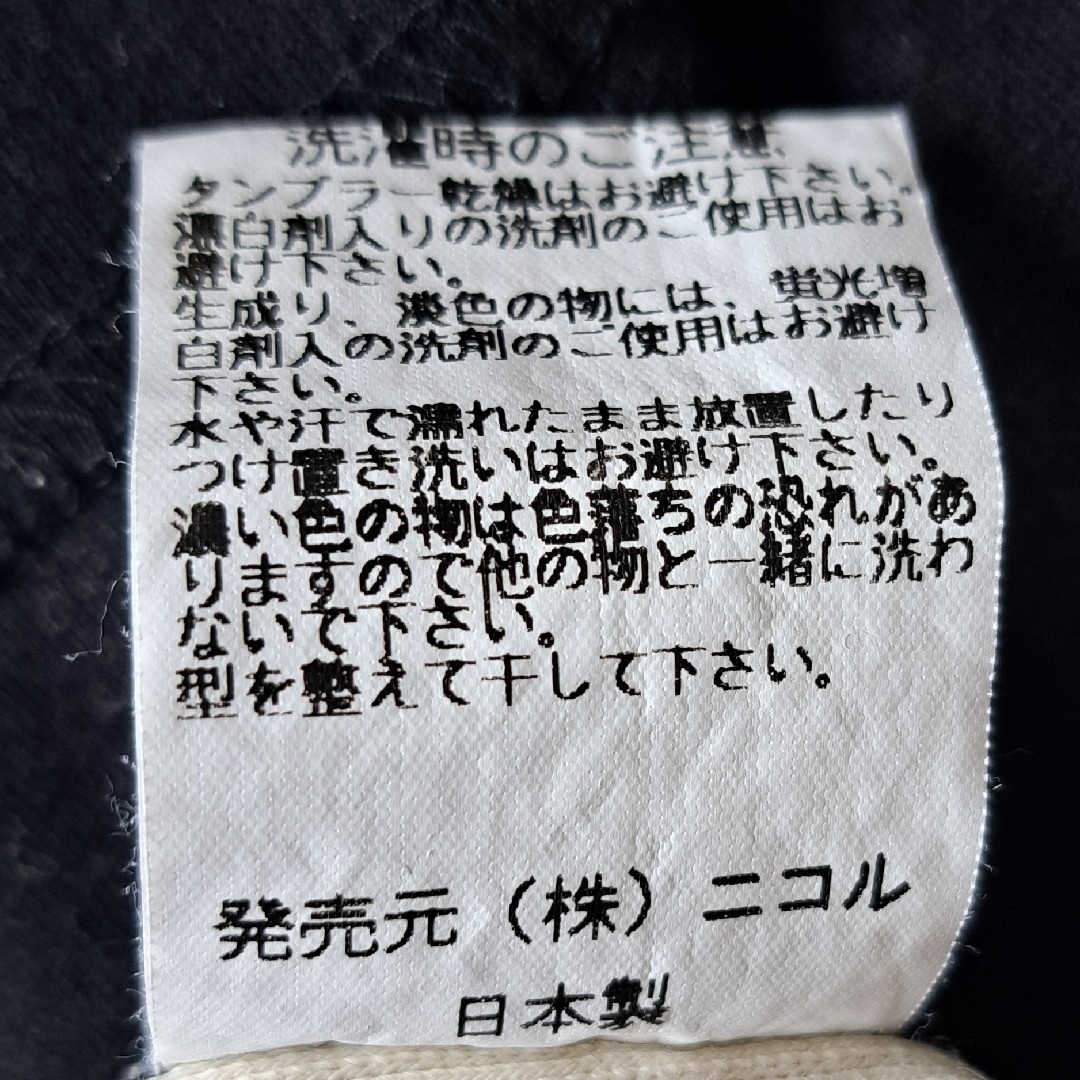 洗濯時のご注意
タンブラー乾燥はお避け下さい。
漂白剤入りの洗剤のご使用はお
避け下さい。
生成り、淡色の物には、蛍光増
白剤入の洗剤のご使用はお避け
下さい。
水や汗で濡れたまま放置したり
つけ置き洗いはお避け下さい。
濃い色の物は色落ちの恐れがあ
りますので他の物と一緒に洗わ
ないで下さい。
型を整えて干して下さい。
発売元（株）ニコル
日本製